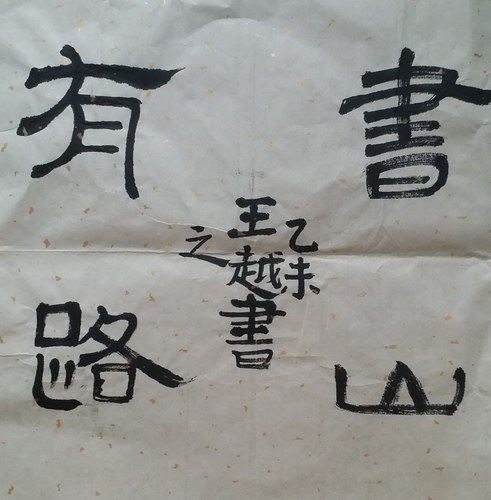 書山
有路
乙未
王越書
之